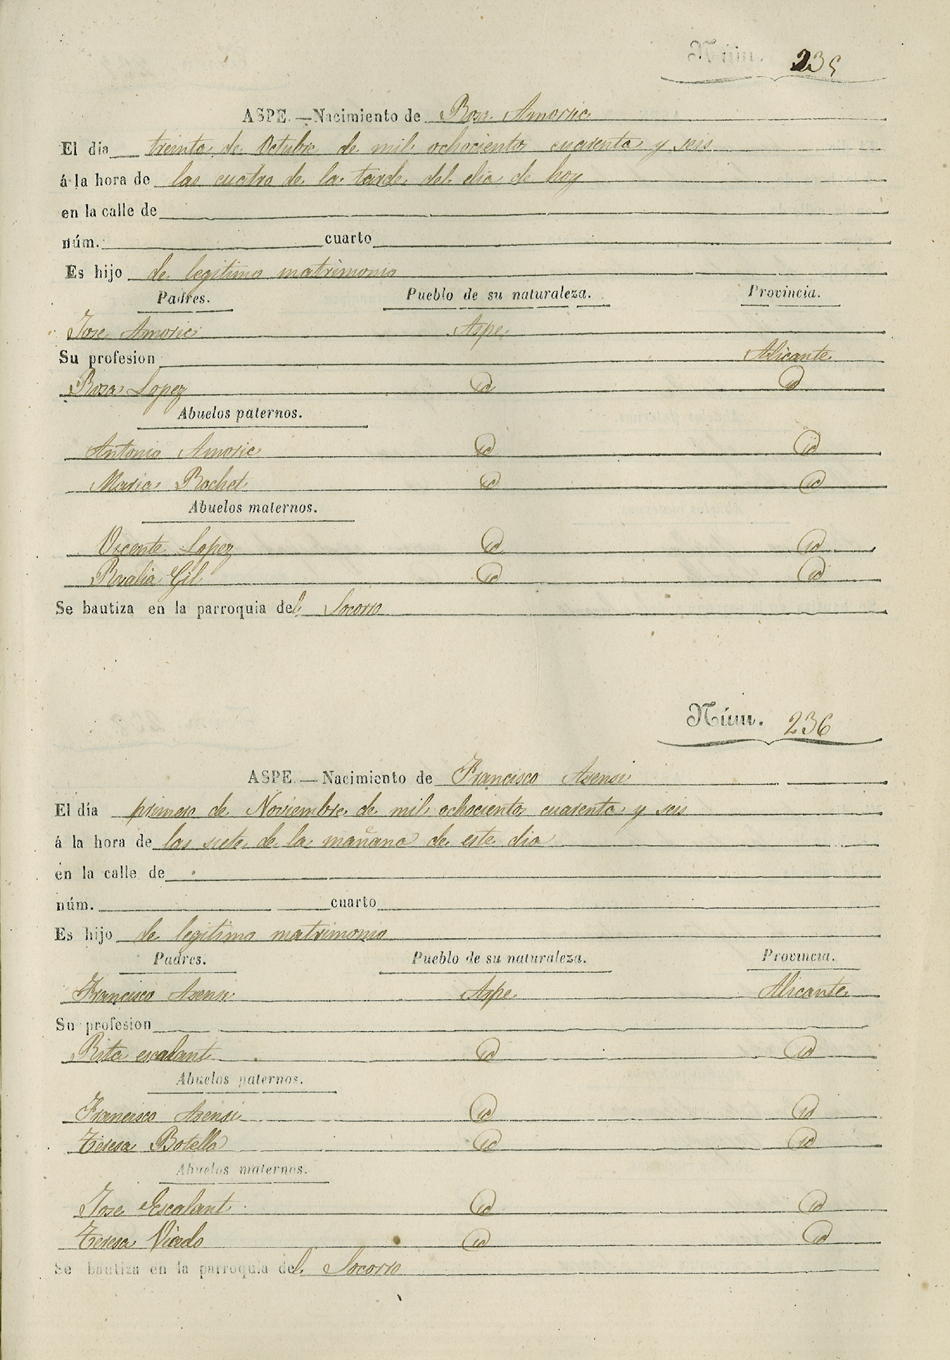 Núm. 235
ASPE.—Nacimiento de Rosa Amoric
El día treinta de Octubre de mil ochociento cuarenta y seis
á la hora de las cuatro de la tarde del dia de hoy
en la calle de
núm. cuarto
Es hijo de legitimo matrimonio
Padres. Pueblo de su naturaleza. Provincia.
Jose Amoric Aspe
Su profesion Alicante
Rosa Lopez id id
Abuelos paternos.
Antonio Amoric id id
Maria Bochot id id
Abuelos maternos.
Vicente Lopez id id
Rosalia Gil id id
Se bautiza en la parroquia del Socorro
Núm. 236
ASPE.—Nacimiento de Francisco Asensi
El día primero de Noviembre de mil ochociento cuarenta y seis
á la hora de las siete de la mañana de este dia
en la calle de
núm. cuarto
Es hijo de legitimo matrimonio
Padres. Pueblo de su naturaleza. Provincia.
Francisco Asensi Aspe Alicante
Su profesion
Rita escalant id id
Abuelos paternos.
Francisco Asensi id id
Teresa Botella id id
Abuelos maternos.
Jose Escalant id id
Teresa id id
Se bautiza en la parroquia del Socorro